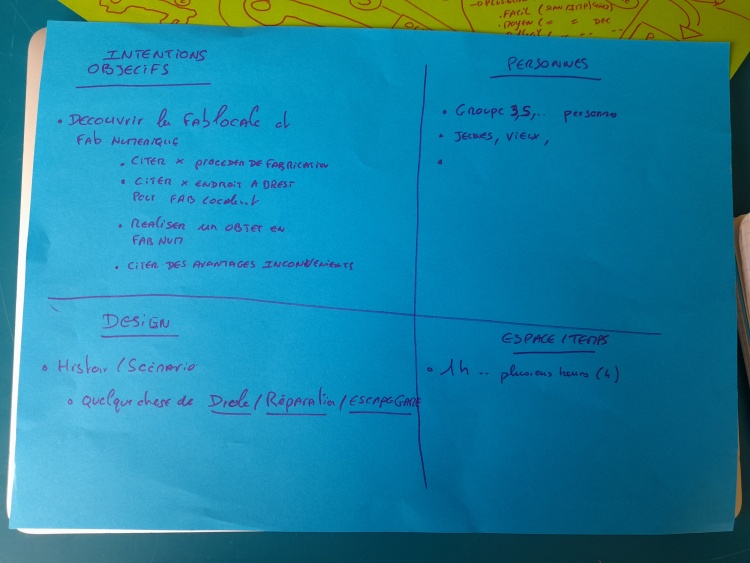 FACIL (SANS
MOYEN (= = DEC
INTENTIONS
OBJECIFS
• DECOUVRIR la FABLOCALE et
FAB NUMERIQUE
• CITER x PROCEDER DE FABRICATION
• CITER x ENDROIT A BREST
POUR FAB localement
• REALISER un OBJET EN
FAB NUM
• CITER DES AVANTAGES INCONVENIENTS
PERSONNES
• GROUPE 3,5,.. personne
• JEUNES, VIEUX,
•
DESIGN
• Histoir / Scénario
• Quelque chose de Drole / Réparation / ESCAPE GAME
ESPACE / TEMPS
• 1h .. plusieurs heures (4)